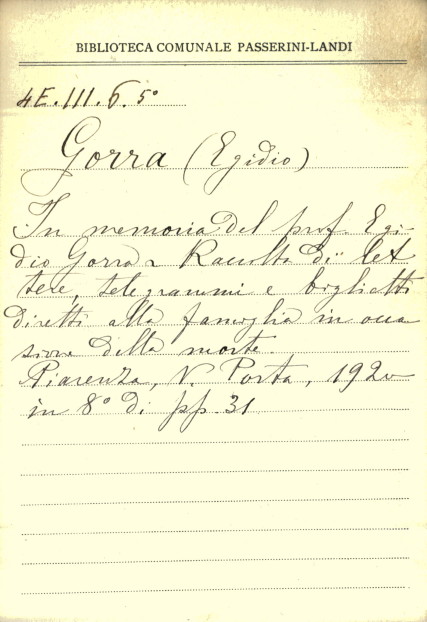 BIBLIOTECA COMUNALE PASSERINI-LANDI
4E.III.6.5°
Gorra (Egidio)
In memoria del prof. Egi-
dio Gorra - Raccolta di let
tere, telegrammi e biglietti
diretti alla famiglia in occa
sione della morte.
Piacenza, V. Porta, 1920
in 8° di pp. 31